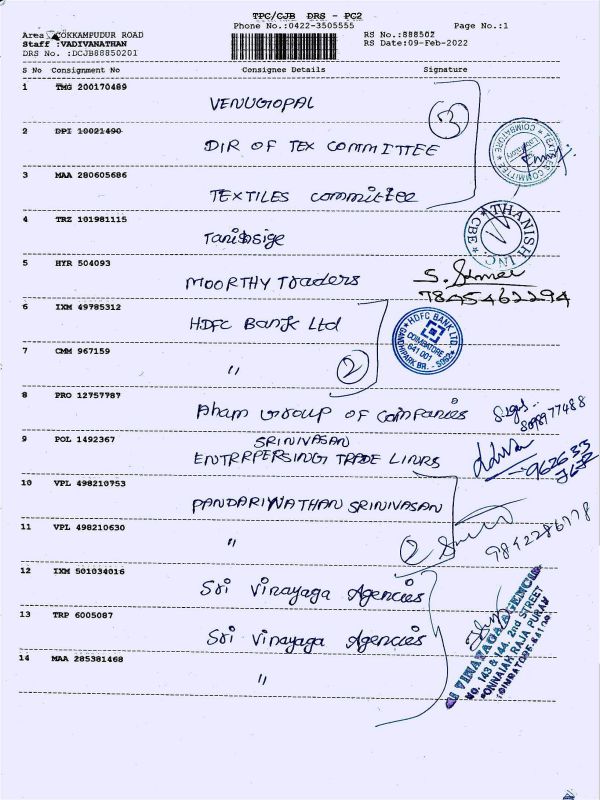 TPC/CJB DRS - PC2
Phone No.:0422-3505555 Page No.:1
Area : GOKKAMPUDUR ROAD RS No.:888502
Staff :VADIVANATHAN RS Date:09-Feb-2022
DRS No. :DCJB88850201
S No Consignment No Consignee Details Signature
1 TMG 200170489
VENUGOPAL
3
2 DPI 10021490
DIR OF TEX COMMITTEE
TEXTILES COMMITTEE * COIMBATORE *
3 MAA 280605686
TEXTILES committee
4 TRZ 101981115
Tanishsige
THANISH INC. * CBE *
5 HYR 504093
MOORTHY Traders
S. Kumar
7845462294
6 IXM 49785312
HDFC Bank Ltd
HDFC BANK LTD.
COIMBATORE
641 001
GANDHIPARK BR. - 5062
7 CMM 967159
" 2
8 PRO 12757787
Aham Group of Companies
8098977488
9 POL 1492367
SRINIVASAN
ENTRRPERSING TRADE LINRS
10 VPL 498210753
PANDARINATHAN SRINIVASAN
11 VPL 498210630
" 2
9842286778
12 IXM 501034016
Sri Vinayaga Agencies
13 TRP 6005087
Sri Vinayaga Agencies
SRI VINAYAGA AGENCIES
NO. 143 & 144, 2nd STREET
PONNAIAH RAJA PURAM
COIMBATORE-641 001
14 MAA 285381468
"